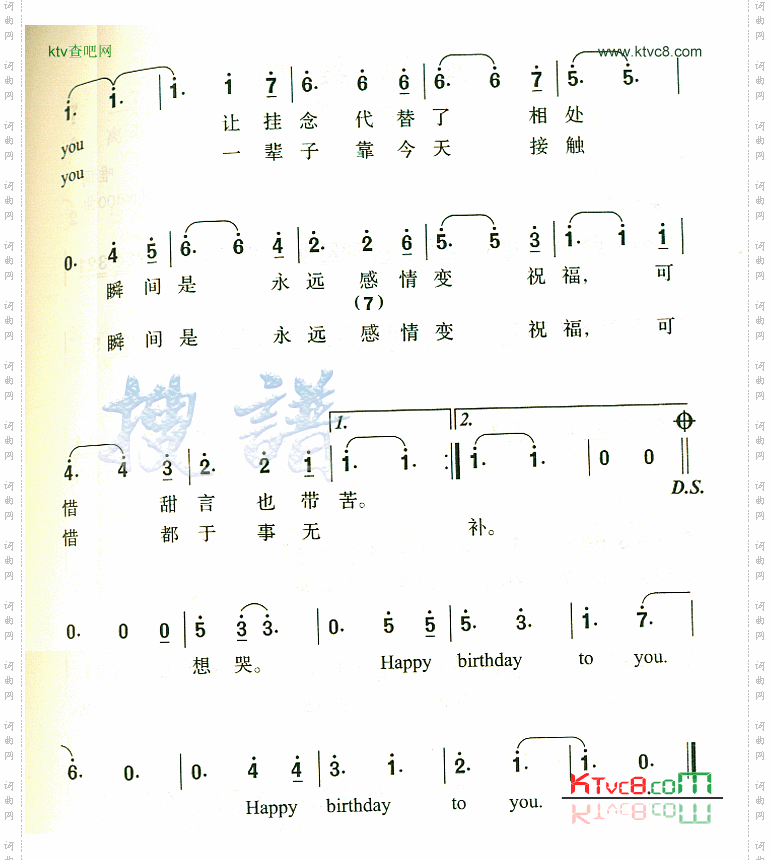 ktv查吧网 www.ktvc8.com
i. i. | i. i 7 | 6. 6 6 | 6. 6 7 | 5. 5. |
you 让挂念 代替了 相处
you 一辈子 靠今天 接触
0. 4 5 | 6. 6 4 | 2. 2 6 | 5. 5 3 | i. i i |
瞬间是 永远 感情变 祝福, 可
(7)
瞬间是 永远 感情变 祝福, 可
搜谱
1. 2.
4. 4 3 | 2. 2 1 | i. i. :| i. i. | 0 0 ||
D.S.
惜 甜言 也带苦。
惜 都于 事无 补。
0. 0 0 | 5 3 3. | 0. 5 5 | 5. 3. | i. 7. |
想哭。 Happy birthday to you.
6. 0. | 0. 4 4 | 3. i. | 2. i. | i. 0. ||
Happy birthday to you.
KTvc8.com
词曲网